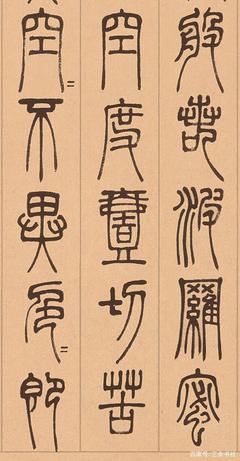 般若波羅蜜
空度壹切苦
空=不異色=即